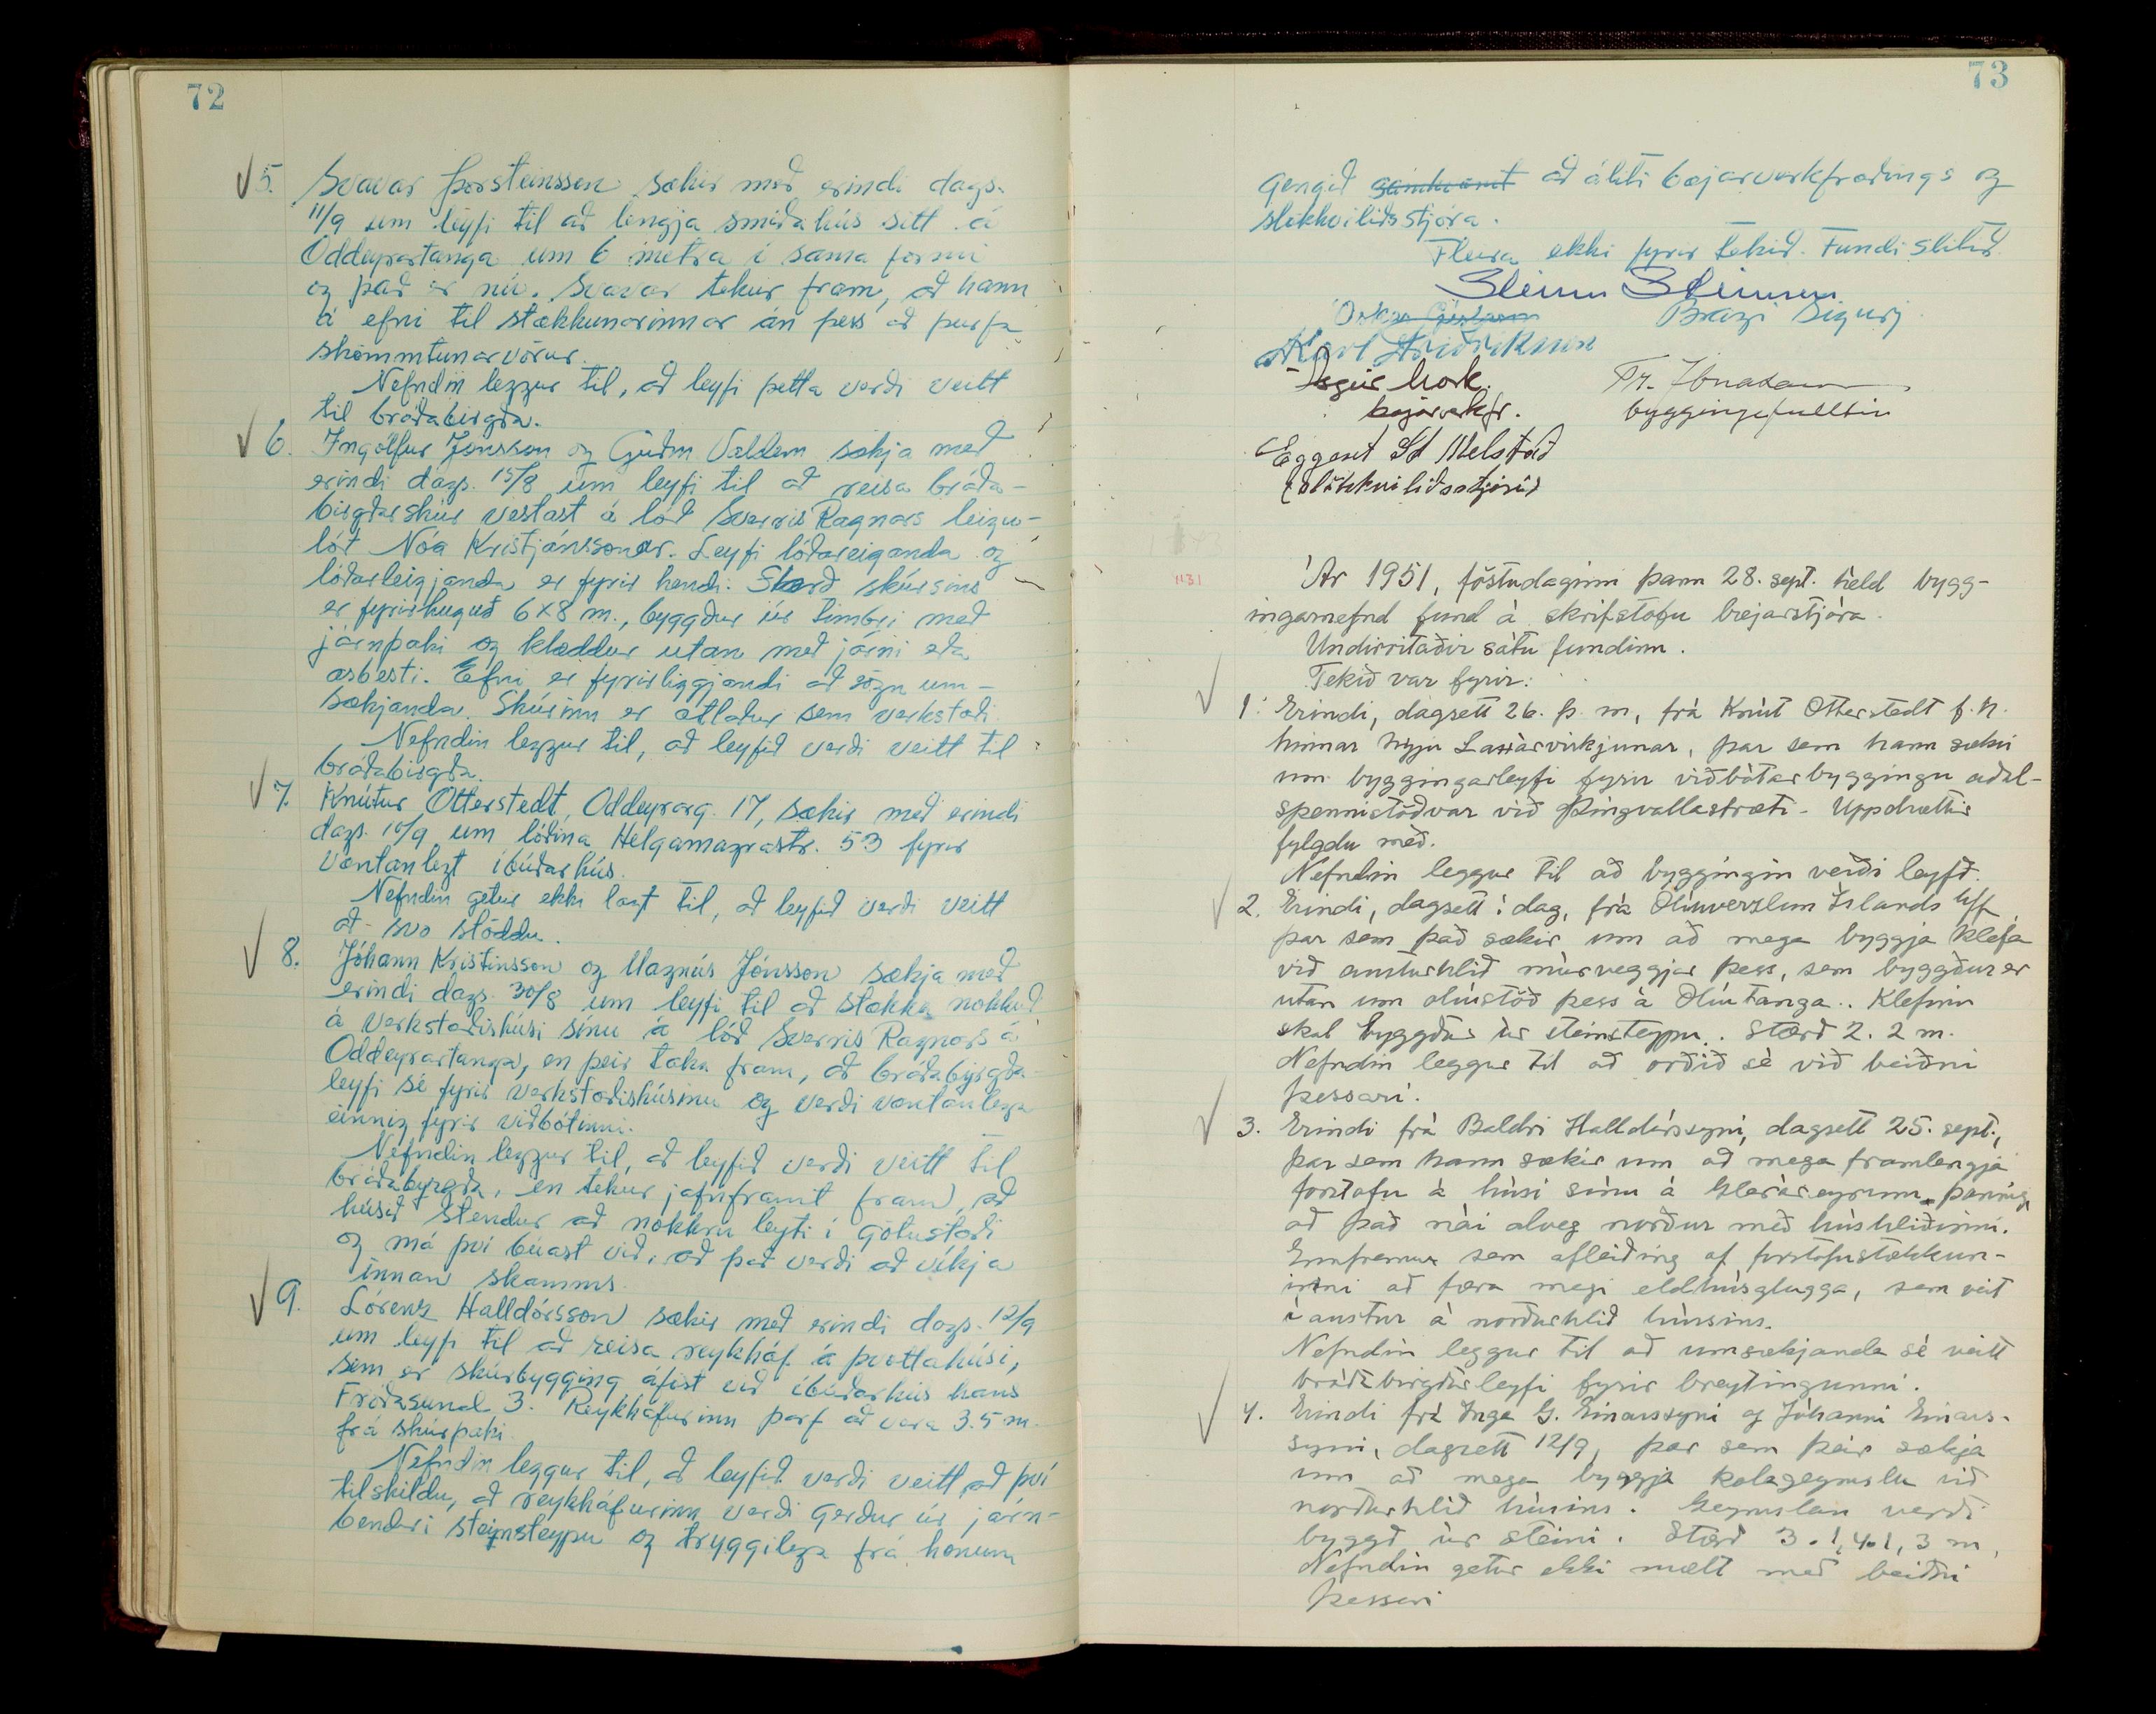 72
5. Svavar Þorsteinsson sækir með erindi dags.
11/9 um leyfi til að lengja smíðahús sitt á
Oddeyrartanga um 6 metra í sama formi
og það er nú. Svavar tekur fram, að hann
á efni til stækkunarinnar án þess að þurfa
skömmtunarvörur.
Nefndin leggur til, að leyfi þetta verði veitt
til bráðabirgða.
6. Ingólfur Jónsson og Guðm Valdem sækja með
erindi dags. 15/8 um leyfi til að reisa bráða-
birgðarskúr vestast á lóð Sverris Ragnars leigu-
lót Nóa Kristjánssonar. Leyfi lóðareiganda og
lóðarleigjanda er fyrir hendi. Stærð skúrsins
er fyrirhuguð 6x8 m., byggður úr timbri með
járnþaki og klæddur utan með járni eða
asbesti. Efni er fyrirliggjandi að sögn um-
sækjanda. Skúrinn er ætlaður sem verkstæði.
Nefndin leggur til, að leyfið verði veitt til
bráðabirgða.
7. Knútur Otterstedt, Oddeyrarg. 17, sækir með erindi
dags. 10/9 um lóðina Helgamagrastr. 53 fyrir
væntanlegt íbúðarhús.
Nefndin getur ekki lagt til, að leyfið verði veitt
að svo stöddu.
8. Jóhann Kristinsson og Magnús Jónsson sækja með
erindi dags. 30/8 um leyfi til að stækka nokkuð
á verkstæðishúsi sínu á lóð Sverris Ragnars á
Oddeyrartanga, en þeir taka fram, að bráðabyrgða
leyfi sé fyrir verkstæðishúsinu og verði væntanlega
einnig fyrir viðbótinni.
Nefndin leggur til, að leyfið verði veitt til
bráðabyrgða, en tekur jafnframt fram, að
húsið stendur að nokkru leyti í götustæði
og má því búast við, að það verði að víkja
innan skamms.
9. Lórenz Halldórsson sækir með erindi dags. 12/9
um leyfi til að reisa reykháf á þvottahúsi,
sem er skúrbygging áföst við íbúðarhús hans
Fróðasund 3. Reykháfurinn þarf að vera 3.5 m.
frá skúrþaki.
Nefndin leggur til, að leyfið verði veitt að því
tilskildu, að reykháfurinn verði gerður úr járn-
bendri steinsteypu og tryggilega frá honum
73
gengið samkvæmt að áliti bæjarverkfræðings og
slökkviliðsstjóra.
Fleira ekki fyrir tekið. Fundi slitið.
Steinn Steinsen
Bragi Sigurj
Karl Friðriksson
Ásgeir Mark.
bæjarverkfr.
Tr. Jónatansson
byggingafulltrúi
Eggert St Melstað
slökkviliðsstjóri
Ár 1951, föstudaginn þann 28. sept. hield bygg-
ingarnefnd fund á skrifstofu bæjarstjóra.
Undirritaðir sátu fundinn.
Tekið var fyrir:
1. Erindi, dagsett 26. þ. m, frá Knút Otterstedt f. h.
hinnar nýju Laxárvirkjunar, þar sem hann sækir
um byggingarleyfi fyrir viðbótarbyggingu aðal-
spennistöðvar við Þingvallastræti. Uppdrættir
fylgdu með.
Nefndin leggur til að byggingin verði leyfð.
2. Erindi, dagsett í dag, frá Olíuverzlun Íslands h/f
þar sem það sækir um að mega byggja klefa
við austurhlið múrveggjar þess, sem byggður er
utan um olíustöð þess á Olíutanga. Klefinn
skal byggður úr steinsteypu. Stærð 2. 2 m.
Nefndin leggur til að orðið sé við beiðni
þessari.
3. Erindi frá Baldri Halldórssyni, dagsett 25. sept.,
þar sem hann sækir um að mega framlengja
forstofu á húsi sínu á Gleráreyrum, þannig
að það nái alveg norður með húshliðinni.
Ennfremur sem afleiðing af forstofustækkun-
inni að færa megi eldhúsglugga, sem veit
í austur á norðurhlið hússins.
Nefndin leggur til að umsækjanda sé veitt
bráðabirgðarleyfi fyrir breytingunni.
4. Erindi frá Inga G. Einarssyni og Jóhanni Einars-
syni, dagsett 12/9, þar sem þeir sækja
um að mega byggja kolageymslu við
norðurhlið húsins. Geymslan verði
byggð úr steini. Stærð 3.1,4.1,3 m.
Nefndin getur ekki mælt með beiðni
þessari